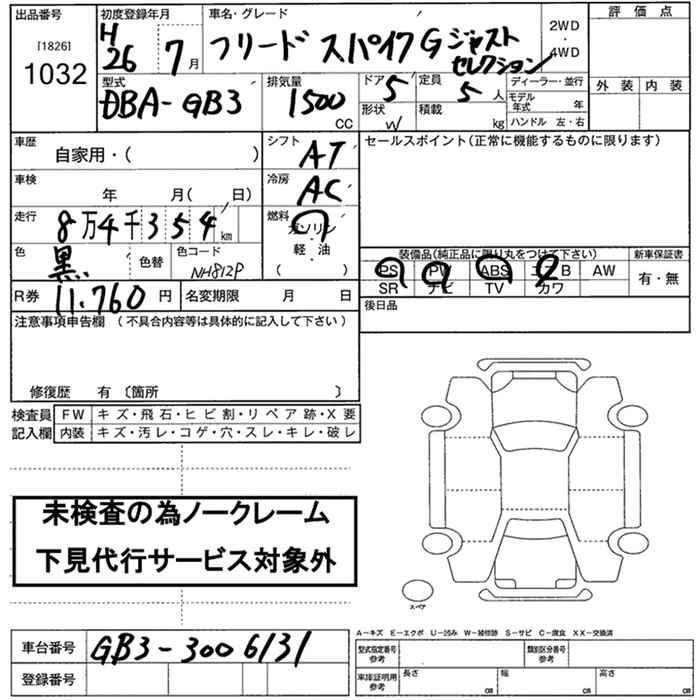 出品番号
[1826]
1032
初度登録年月
H
26 7 月
車名・グレード
フリード スパイク G ジャスト
セレクション
2WD
・
4WD
評価点
外装 内装
型式
DBA-GB3
排気量
1500
CC
ドア 5
形状 W
定員 5 人
積載 kg
ディーラー・並行
モデル
年式 年
ハンドル 左・右
車歴
自家用・( )
シフト AT
セールスポイント(正常に機能するものに限ります)
車検
年 月( 日)
冷房 AC
走行
8万4千354km
燃料
ガソリン
・
軽・油
( )
色
黒
色替
色コード
NH812P
装備品(純正品に限り丸をつけて下さい)
PS PW ABS エアB AW
SR ナビ TV カワ
新車保証書
有・無
R券 11.760 円
名変期限 月 日
後日品
注意事項申告欄 (不具合内容等は具体的に記入して下さい)
修復歴 有 〔箇所 〕
検査員 FW キズ・飛石・ヒビ割・リペア跡・X要
記入欄 内装 キズ・汚レ・コゲ・穴・スレ・キレ・破レ
未検査の為ノークレーム
下見代行サービス対象外
スペア
車台番号 GB3-3006131
登録番号
A-キズ E-エクボ U-凹み W-補修跡 S-サビ C-腐食 XX-交換済
型式指定番号
参考
類別区分番号
参考
車庫証明用
参考
長さ cm
幅 cm
高さ cm